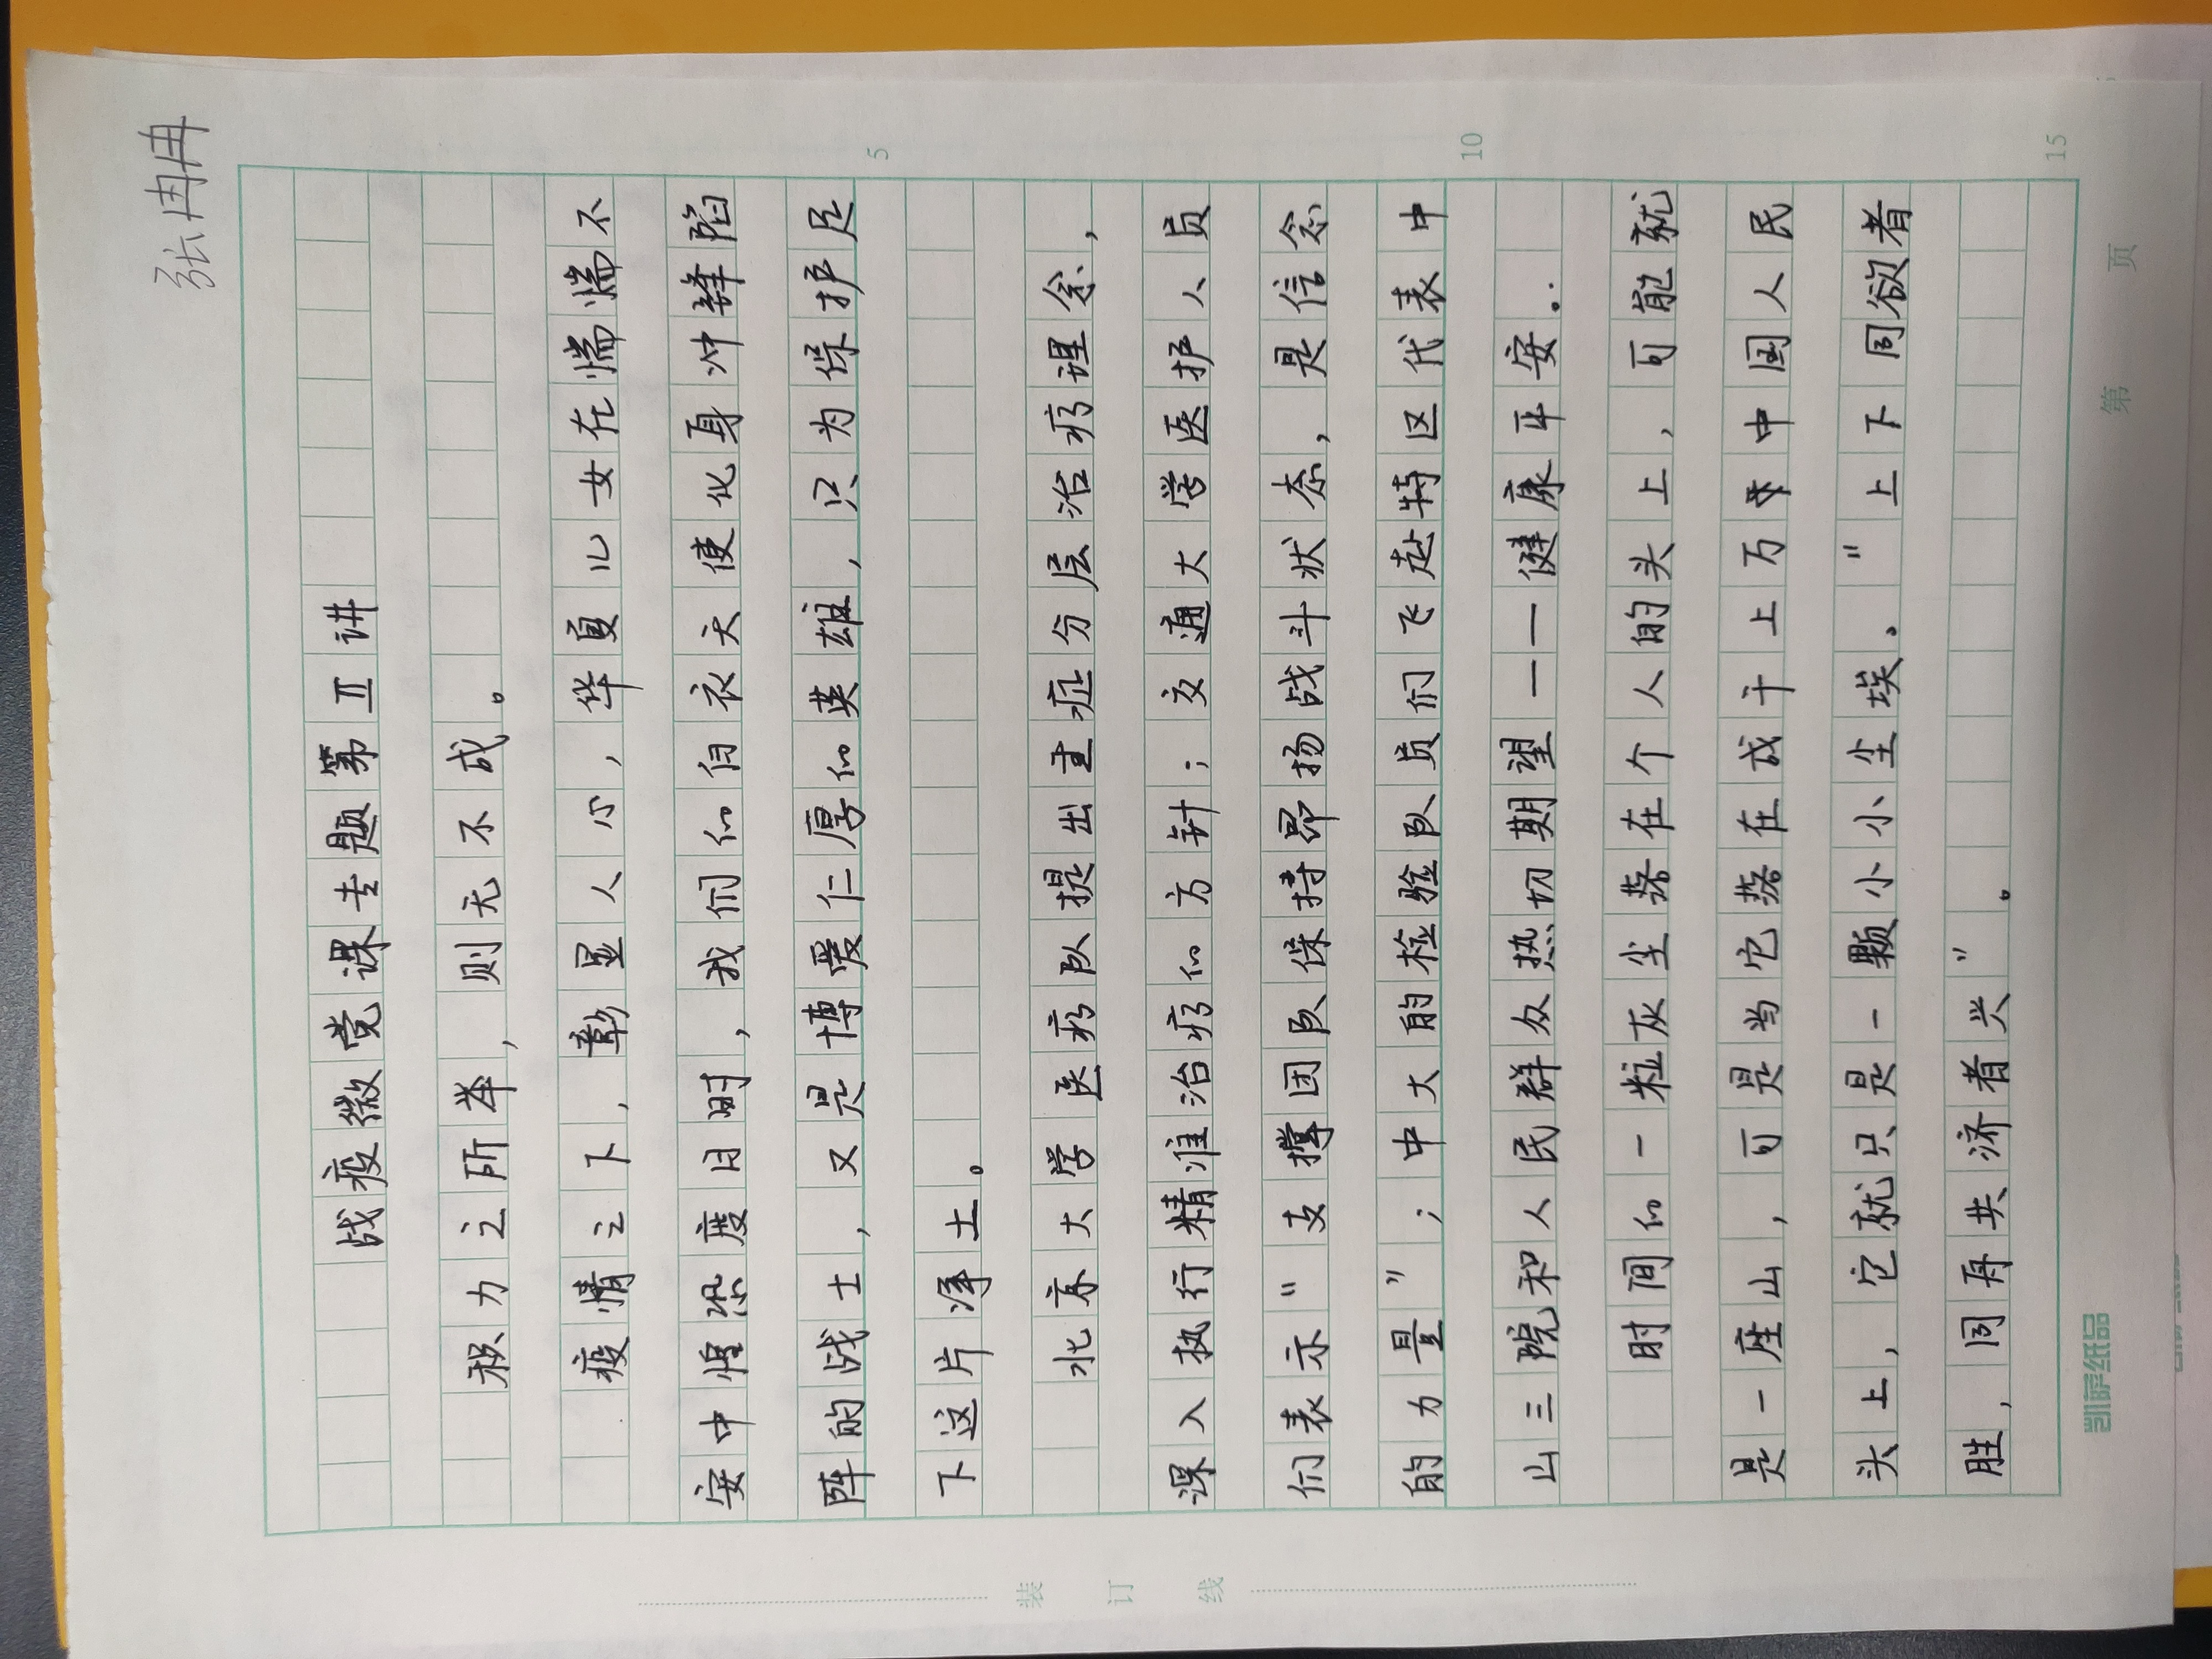 张冉冉
战疫微党课专题第Ⅱ讲
积力之所举，则无不成。
疫情之下，彰显人心，华夏儿女在惴惴不
安中惶恐度日时，我们的白衣天使化身冲锋陷
阵的战士，又是博爱仁厚的英雄，只为保护足
下这片净土。
5
北京大学医疗队提出重症分层治疗理念，
深入执行精准治疗的方针；交通大学医护人员
们表示“支撑团队保持昂扬战斗状态，是信念
的力量”；中大的检验队员们飞赴特区代表中
10
山三院和人民群众热切期望——健康平安。
时间的一粒灰尘落在个人的头上，可能就
是一座山，可是当它落在成千上万中国人民
头上，它就只是一颗小小尘埃。“上下同欲者
胜，同舟共济者兴”。
15
装订线
凯萨纸品
第 页